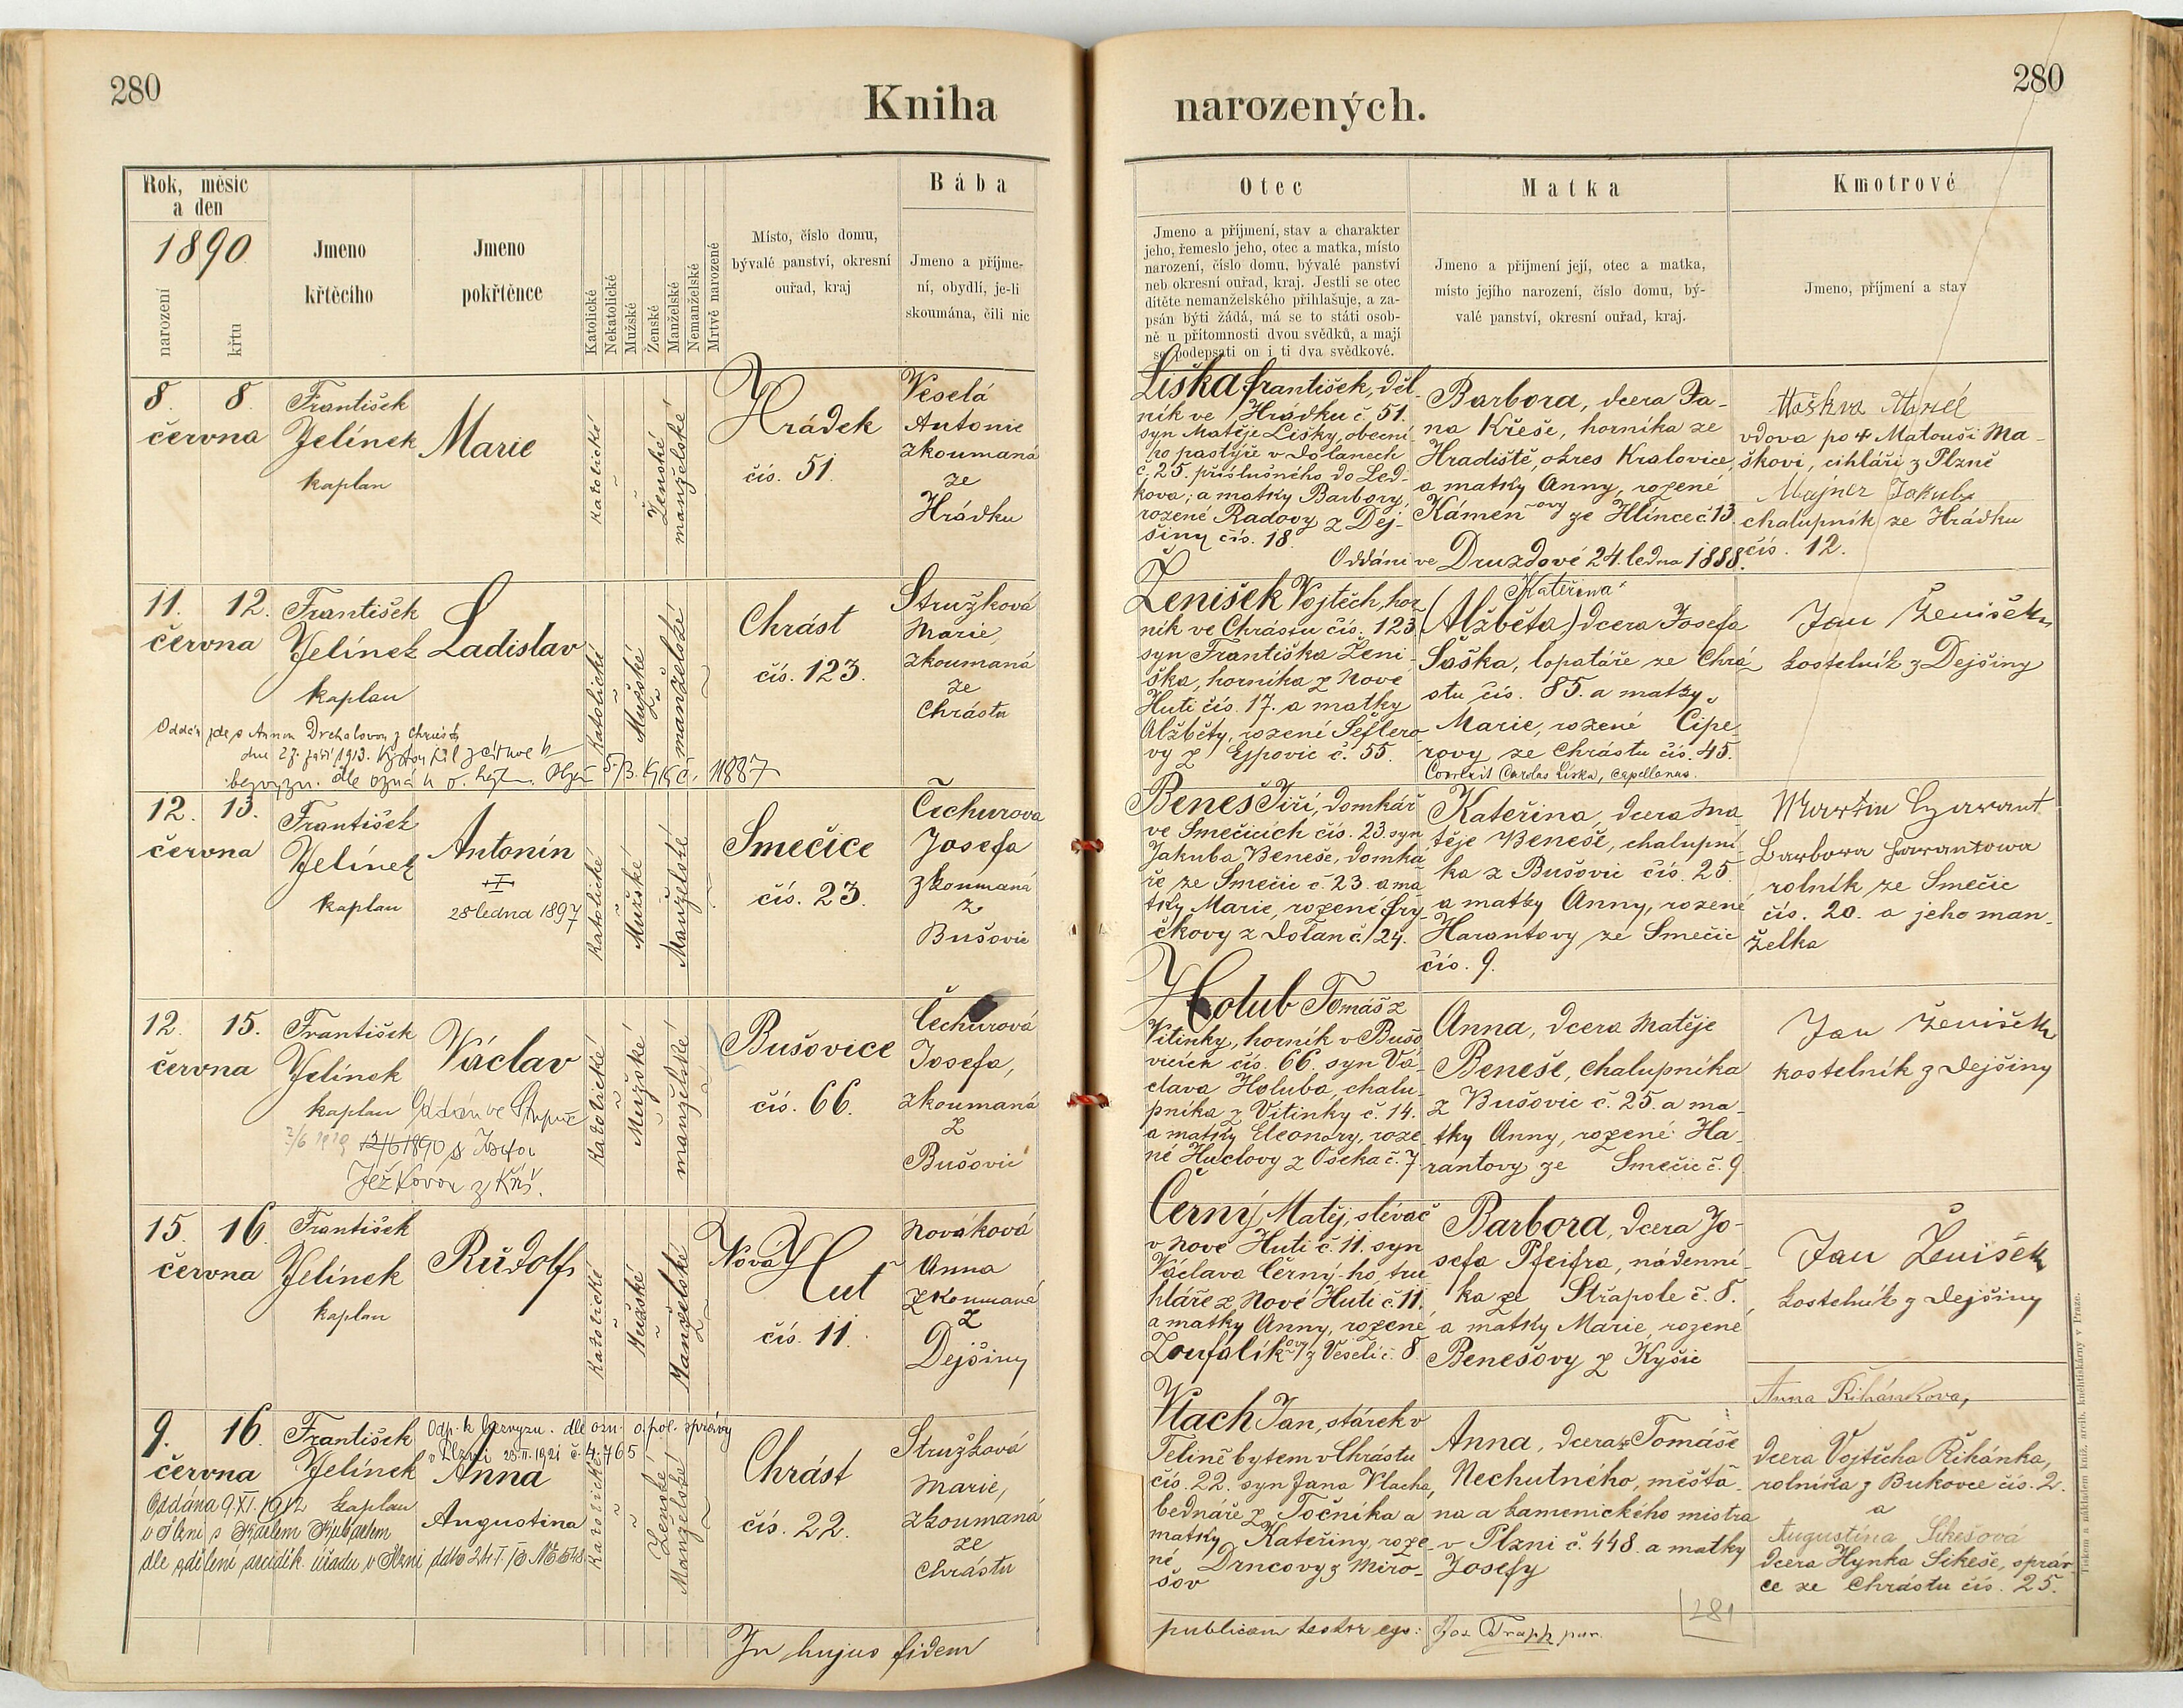 280
Kniha
Rok, měsíc
a den
1890
narození
křtu
Jmeno
křtěcího
Jmeno
pokřtěnce
Katolické
Nekatolické
Mužské
Ženské
Manželské
Nemanželské
Mrtvě narozené
Místo, číslo domu,
bývalé panství, okresní
ouřad, kraj
Bába
Jmeno a příjme-
ní, obydlí, je-li
zkoumána, čili nic
8. 8.
června
František
Jelínek
kaplan
Marie
katolické
Ženské
manželské
Hrádek
čís. 51.
Veselá
Antonie
zkoumaná
ze
Hrádku
11. 12.
června
František
Jelínek
kaplan
Ladislav
Katolické
Mužské
manželské
Chrást
čís. 123.
Stružková
Marie,
zkoumaná
ze
Chrástu
Oddán zde s Annou Drchalovou z Chrástu
dne 27. září 1913. Vystoupil z církve k
bezvyzn. dle ozná
12. 13.
června
František
Jelínek
kaplan
Antonín
28 ledna 1897
Katolické
Mužské
Manželské
Smečice
čís. 23.
Čechurova
Josefa
zkoumaná
z
Bušovic
12. 15.
června
František
Jelínek
kaplan
Václav
Oddán ve
12/6 1890 s Josefou
Ježkovou z
Katolické
Mužské
manželské
Bušovice
čís. 66.
Čechurová
Josefa,
zkoumaná
z
Bušovic
15. 16.
června
František
Jelínek
kaplan
Rudolf
Katolické
Mužské
Manželské
Nová Huť
čís. 11.
Nováková
Anna
zkoumaná
z
Dejšiny
9. 16.
června
František
Jelínek
kaplan
Odp. k bezvyzn. dle ozn. o. pol. správy
v Plzni 23.II.1921 č. 4.765
Anna
Augustina
Oddána 9.XI.1912
v Plzni s Karlem
dle sdělení arcidík. úřadu v Plzni ddto 24.I.
Katolické
Ženské
Manželské
Chrást
čís. 22.
Stružková
Marie,
zkoumaná
ze
Chrástu
In hujus fidem
280
narozených.
Otec
Jmeno a příjmení, stav a charakter
jeho, řemeslo jeho, otec a matka, místo
narození, číslo domu, bývalé panství
neb okresní ouřad, kraj. Jestli se otec
dítěte nemanželského přihlašuje, a za-
psán býti žádá, má se to státi osob-
ně u přítomnosti dvou svědků, a mají
se podepsati on i ti dva svědkové.
Matka
Jmeno a příjmení její, otec a matka,
místo jejího narození, číslo domu, bý-
valé panství, okresní ouřad, kraj.
Kmotrové
Jmeno, příjmení a stav
Liška František, děl-
ník ve Hrádku č. 51.
syn Matěje Lišky, obecní-
ho pastýře v Dolanech
č. 25. příslušného do Led-
kova; a matky Barbory,
rozené Radovy z Dej-
šiny čís. 18.
Barbora, dcera Ja-
na Křeše, horníka ze
Hradiště, okres Kralovice,
a matky Anny, rozené
Kámen-ovy ze Hlince č. 13
Oddáni ve Druzdové 24. ledna 1888.
vdova po Matouši Ma-
škovi, cihláři z Plzně
Majner Jakub
chalupník ze Hrádku
čís. 12.
Ženíšek Vojtěch, hor-
ník ve Chrástu čís. 123
syn Františka Žení-
ška, horníka z Nové
Huti čís. 17. a matky
Alžběty, rození Šeflero-
vy z Ejpovic č. 55.
Kateřina
(Alžběta) dcera Josefa
Saška, lopatáře ze Chrá-
stu čís. 85. a matky
Marie, rozené Cipe-
rovy ze Chrástu čís. 45.
Correxit Carolus Liska, capellanus.
Jan Ženíšek
kostelník z Dejšiny
Beneš Jiří, domkář
ve Smečicích čís. 23. syn
Jakuba Beneše, domka-
ře ze Smečic č. 23. a ma-
tky Marie, rozené Fry-
čkovy z Dolan č. 24.
Kateřina, dcera Ma-
těje Beneše, chalupní-
ka z Bušovic čís. 25
a matky Anny, rozené
Harantovy ze Smečic
čís. 9.
Martin Harant
Barbora Harantowa
rolník ze Smečic
čís. 20. a jeho man-
želka
Holub Tomáš z
Vitinky, horník v Bušo-
vicích čís. 66. syn Vá-
clava Holuba, chalu-
pníka z Vitinky č. 14.
a matky Eleonory, roze-
né Huclovy z Oseka č. 7
Anna, dcera Matěje
Beneše, chalupníka
z Bušovic č. 25. a ma-
tky Anny, rozené Ha-
rantovy ze Smečic č. 9
Jan Ženíšek
kostelník z Dejšiny
Černý, Matěj, slévač
v Nové Huti č. 11. syn
Václava Černý-ho, tru-
hláře z Nové Huti č. 11.
a matky Anny, rozené
Zoufalík-ovy z Veselí č. 8
Barbora, dcera Jo-
sefa Pfeifra, nádenní-
ka ze Střapole č. 8.
a matky Marie, rozené
Benešovy z Kyšic
Jan Ženíšek
kostelník z Dejšiny
Vlach Jan, stárek v
Felině bytem v Chrástu
čís. 22. syn Jana Vlacha,
bednáře z Točníka a
matky Kateřiny, roze-
né Drncovy z Miro-
šov
Anna, dcera Tomáše
Nechutného, měšťa-
na a kamenického mistra
v Plzni č. 448. a matky
Josefy
Anna Řihánkova,
dcera Vojtěcha Řihánka,
rolníka z Bukovce čís. 2.
a
Augustina Sikešová
dcera Hynka Sikeše, správ-
ce ze Chrástu čís. 25.
281
publicam testor ego: Jos. Trapp par.
Tiskem a nákladem kníž. arcib. knihtiskárny v Praze.